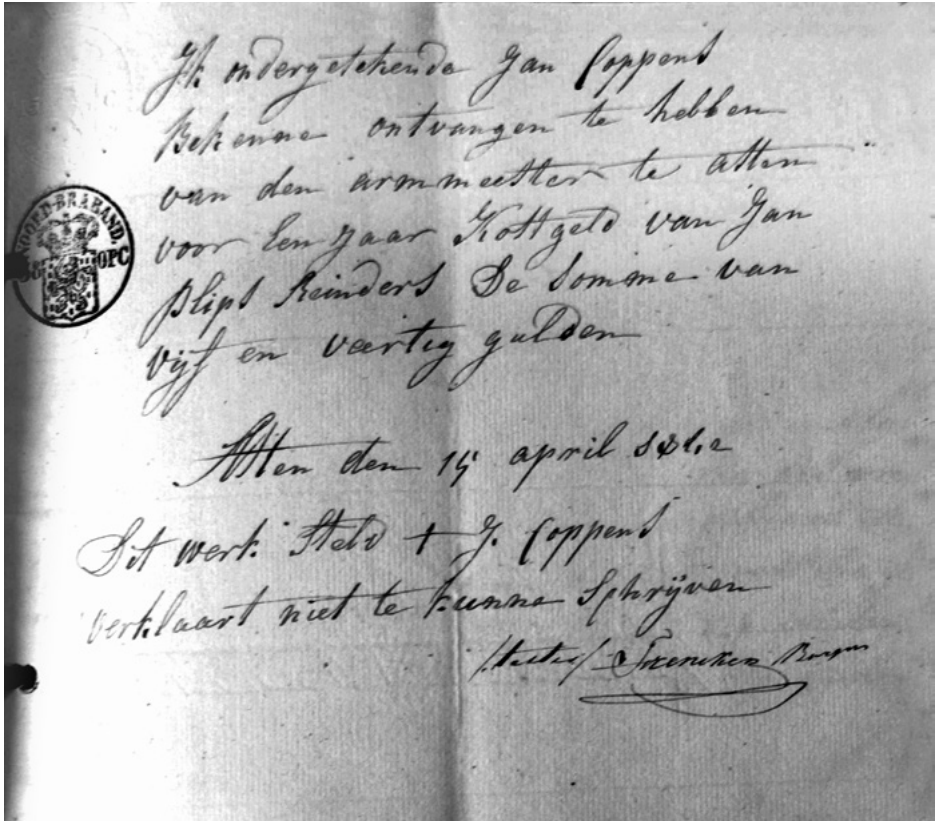 Ik ondergetekende Jan Coppens
Bekenne ontvangen te hebben
van den armmeester te Atten
voor Een Jaar Kostgeld van Jan
Slips Reinders De Somme van
vijf en veertig gulden
Atten den 15 april
Dit werk Steld + J. Coppens
verklaart niet te kunne Schrijven
NOORD-BRABAND.
OPC